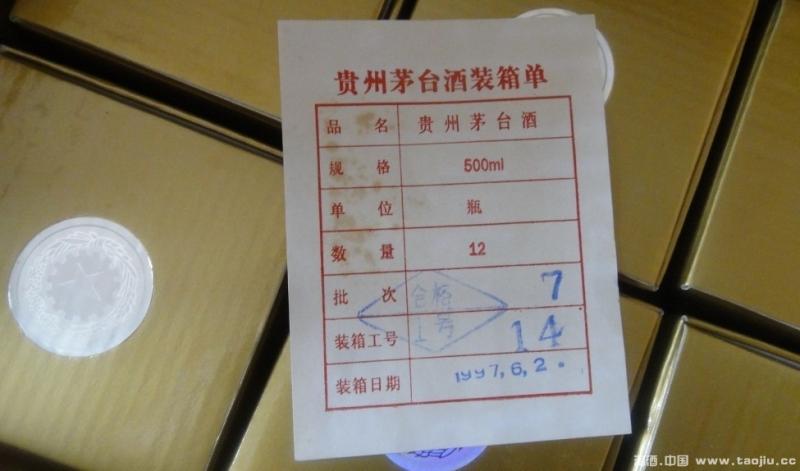 贵州茅台酒装箱单
品名 贵州茅台酒
规格 500ml
单位 瓶
数量 12
批次 7
合格
装箱工号 14
工号
装箱日期 1997.6.2.
淘酒.中国 www.taojiu.cc